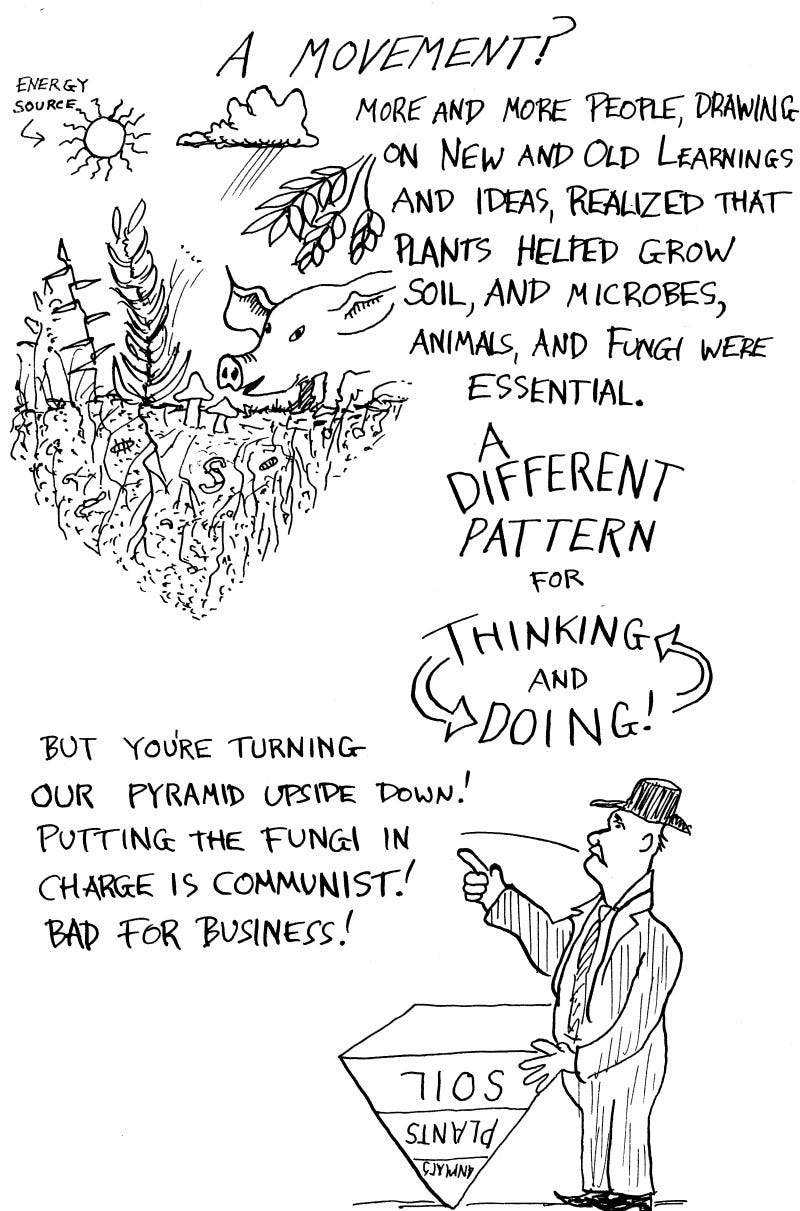 A MOVEMENT?
ENERGY
SOURCE
MORE AND MORE PEOPLE, DRAWING
ON NEW AND OLD LEARNINGS
AND IDEAS, REALIZED THAT
PLANTS HELPED GROW
SOIL, AND MICROBES,
ANIMALS, AND FUNGI WERE
ESSENTIAL.
A
DIFFERENT
PATTERN
FOR
THINKING
AND
DOING!
BUT YOU'RE TURNING
OUR PYRAMID UPSIDE DOWN!
PUTTING THE FUNGI IN
CHARGE IS COMMUNIST!
BAD FOR BUSINESS!
SOIL
PLANTS
ANIMALS